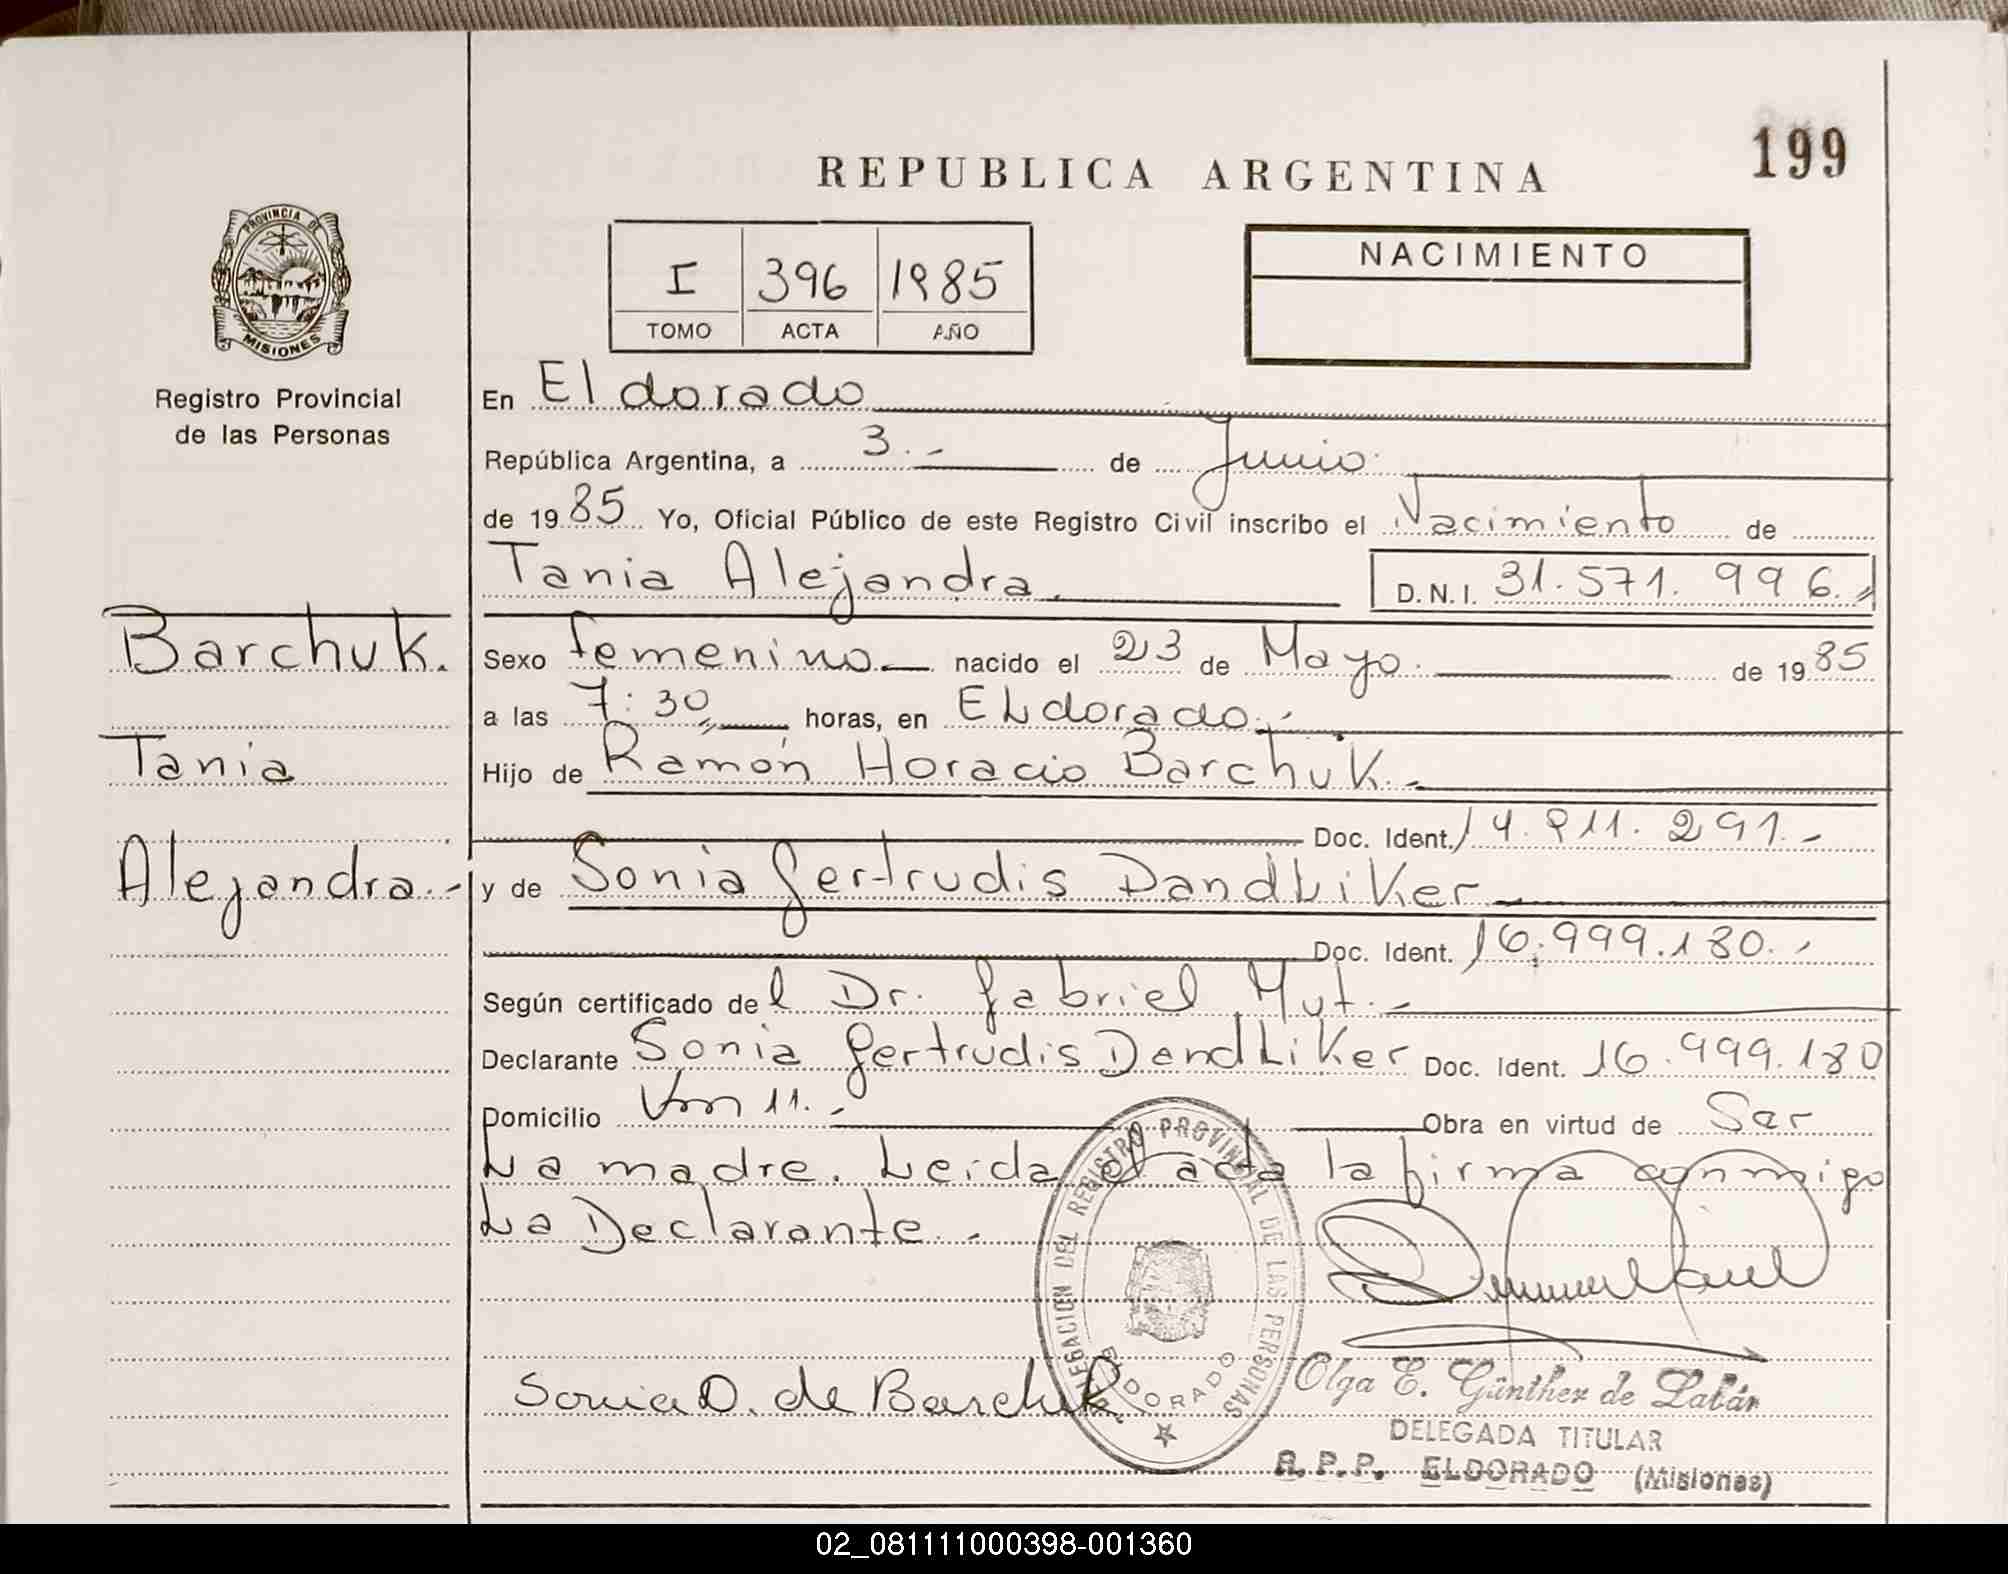 199
REPUBLICA ARGENTINA
PROVINCIA DE
MISIONES
I 396 1985
TOMO ACTA AÑO
NACIMIENTO
Registro Provincial
de las Personas
En Eldorado
República Argentina, a 3.- de Junio
de 1985 Yo, Oficial Público de este Registro Civil inscribo el Nacimiento de
Tania Alejandra. D.N.I. 31.571.996.
Barchuk.
Sexo femenino nacido el 23 de Mayo. de 1985
a las 7:30 horas, en ELdorado.-
Tania
Hijo de Ramón Horacio Barchuk.-
Doc. Ident. 14.911.291.-
Alejandra.-
y de Sonia Gertrudis DandLiker
Doc. Ident. 16.999.180.-
Según certificado del Dr. Gabriel Mut.-
Declarante Sonia Gertrudis DandLiker Doc. Ident. 16.999.180
Domicilio Km 11.- Obra en virtud de Ser
La madre. Leida el acta la firma conmigo
La Declarante.-
DELEGACION DEL REGISTRO PROVINCIAL DE LAS PERSONAS
ELDORADO
Sonia D. de Barchuk.
Olga E. Günther de Labár
DELEGADA TITULAR
R.P.P. ELDORADO (Misiones)
02_081111000398-001360